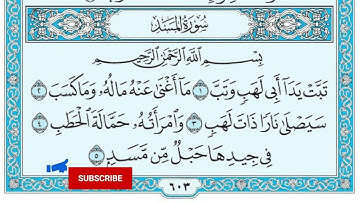 سُورَةُ المَسَدِ
بِسْمِ اللَّهِ الرَّحْمَٰنِ الرَّحِيمِ
تَبَّتْ يَدَا أَبِي لَهَبٍ وَتَبَّ ١ مَا أَغْنَىٰ عَنْهُ مَالُهُ وَمَا كَسَبَ ٢
سَيَصْلَىٰ نَارًا ذَاتَ لَهَبٍ ٣ وَامْرَأَتُهُ حَمَّالَةَ الْحَطَبِ ٤
فِي جِيدِهَا حَبْلٌ مِّن مَّسَدٍ ٥
SUBSCRIBE
٦٠٣